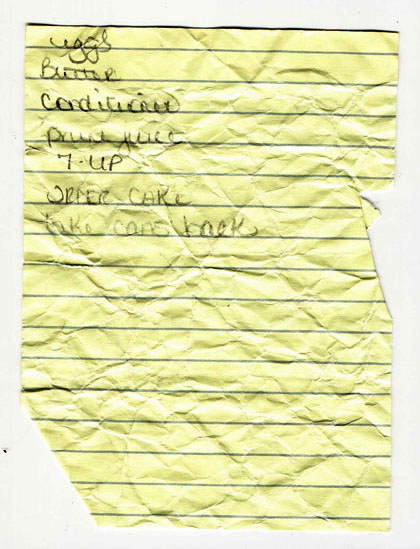 eggs
Butter
Conditioner
prune juice
7-UP
ORDER CAKE
take cans back